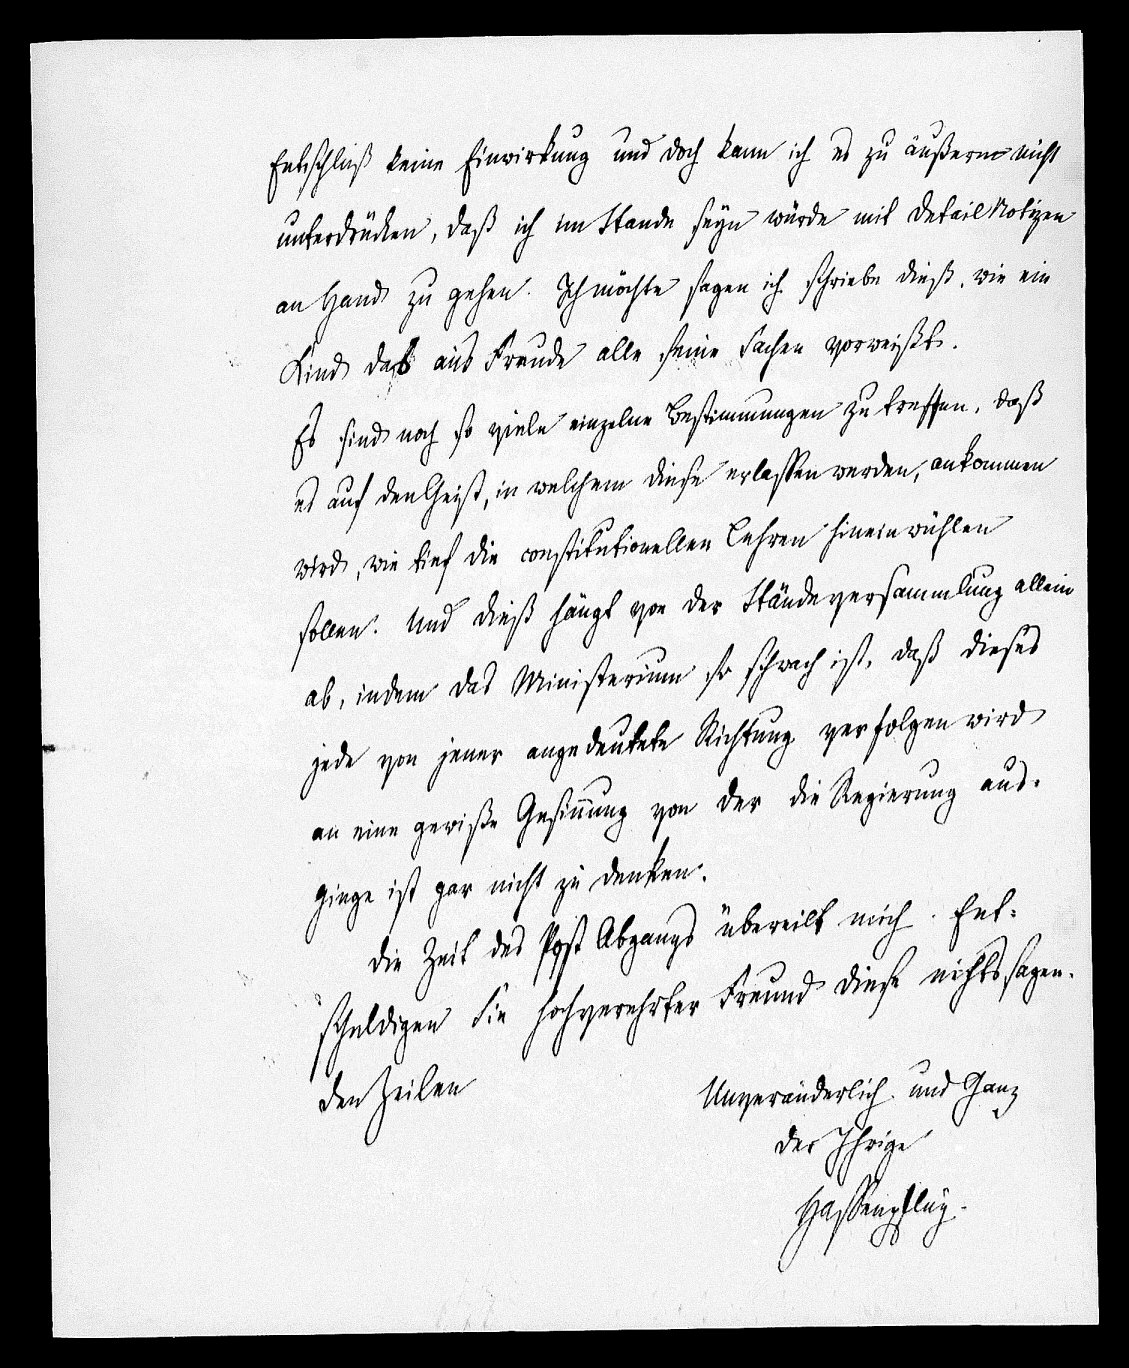 Entschluß keine Einwirkung und doch kann ich es zu äußern nicht
unterdrücken, daß ich im Stande seyn würde mit Detail Notizen
an Hand zu gehen. Ich möchte sagen ich schriebe dieß, wie ein
Kind das aus Freude alle seine Sachen vorweißt.
Es sind noch so viele einzelne Bestimmungen zu treffen, daß
es auf den Geist, in welchem diese erlassen werden, ankommen
wird, wie tief die constitutionellen Lehren hineinwühlen
sollen. Und dieß hängt von der Ständeversammlung allein
ab, indem das Ministerium so schwach ist, daß dieses
jede von jener angedeutete Richtung verfolgen wird
an eine gewiße Gesin̄ung von der die Regierung aus-
ginge ist gar nicht zu denken.
Die Zeit des Post Abgangs übereilt mich. Ent-
schuldigen Sie hochverehrter Freund diese nichtssagen-
den Zeilen
Unveränderlich und Ganz
der Ihrige
Hassenpflug.